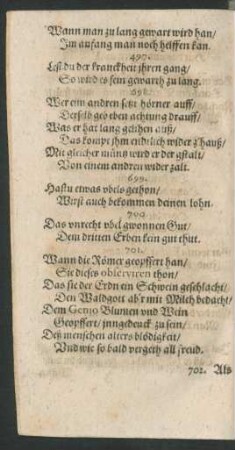 Wann man zu lang gewart wird han/
Im anfang man noch helffen kan.
497.
Lest du der kranckheit jhren gang/
So wird es sein gewarth zu lang.
698.
Wer eim andren setzt hörner auff/
Derselb geb eben achtung drauff/
Was er hat lang gelihen auß/
Das kompt jhm endtlich wider z'hauß/
Mit gleicher müntz wird er der gstalt/
Von einem andren wider zalt.
699.
Hastu etwas vbels gethon/
Wirst auch bekommen deinen lohn.
700
Das vnrecht vbel gwonnen Gut/
Dem dritten Erben kein gut thut.
701.
Wann die Römer geopffert han/
Sie dieses observiren thon/
Das sie der Erdn ein Schwein geschlacht/
Den Waldgott ab'r mit Milch bedacht/
Dem Genio Blumen vnd Wein
Geopffert/ jnngedenck zu sein/
Deß menschen alters blödigkeit/
Vnd wie so bald vergeth all freud.
702. Als